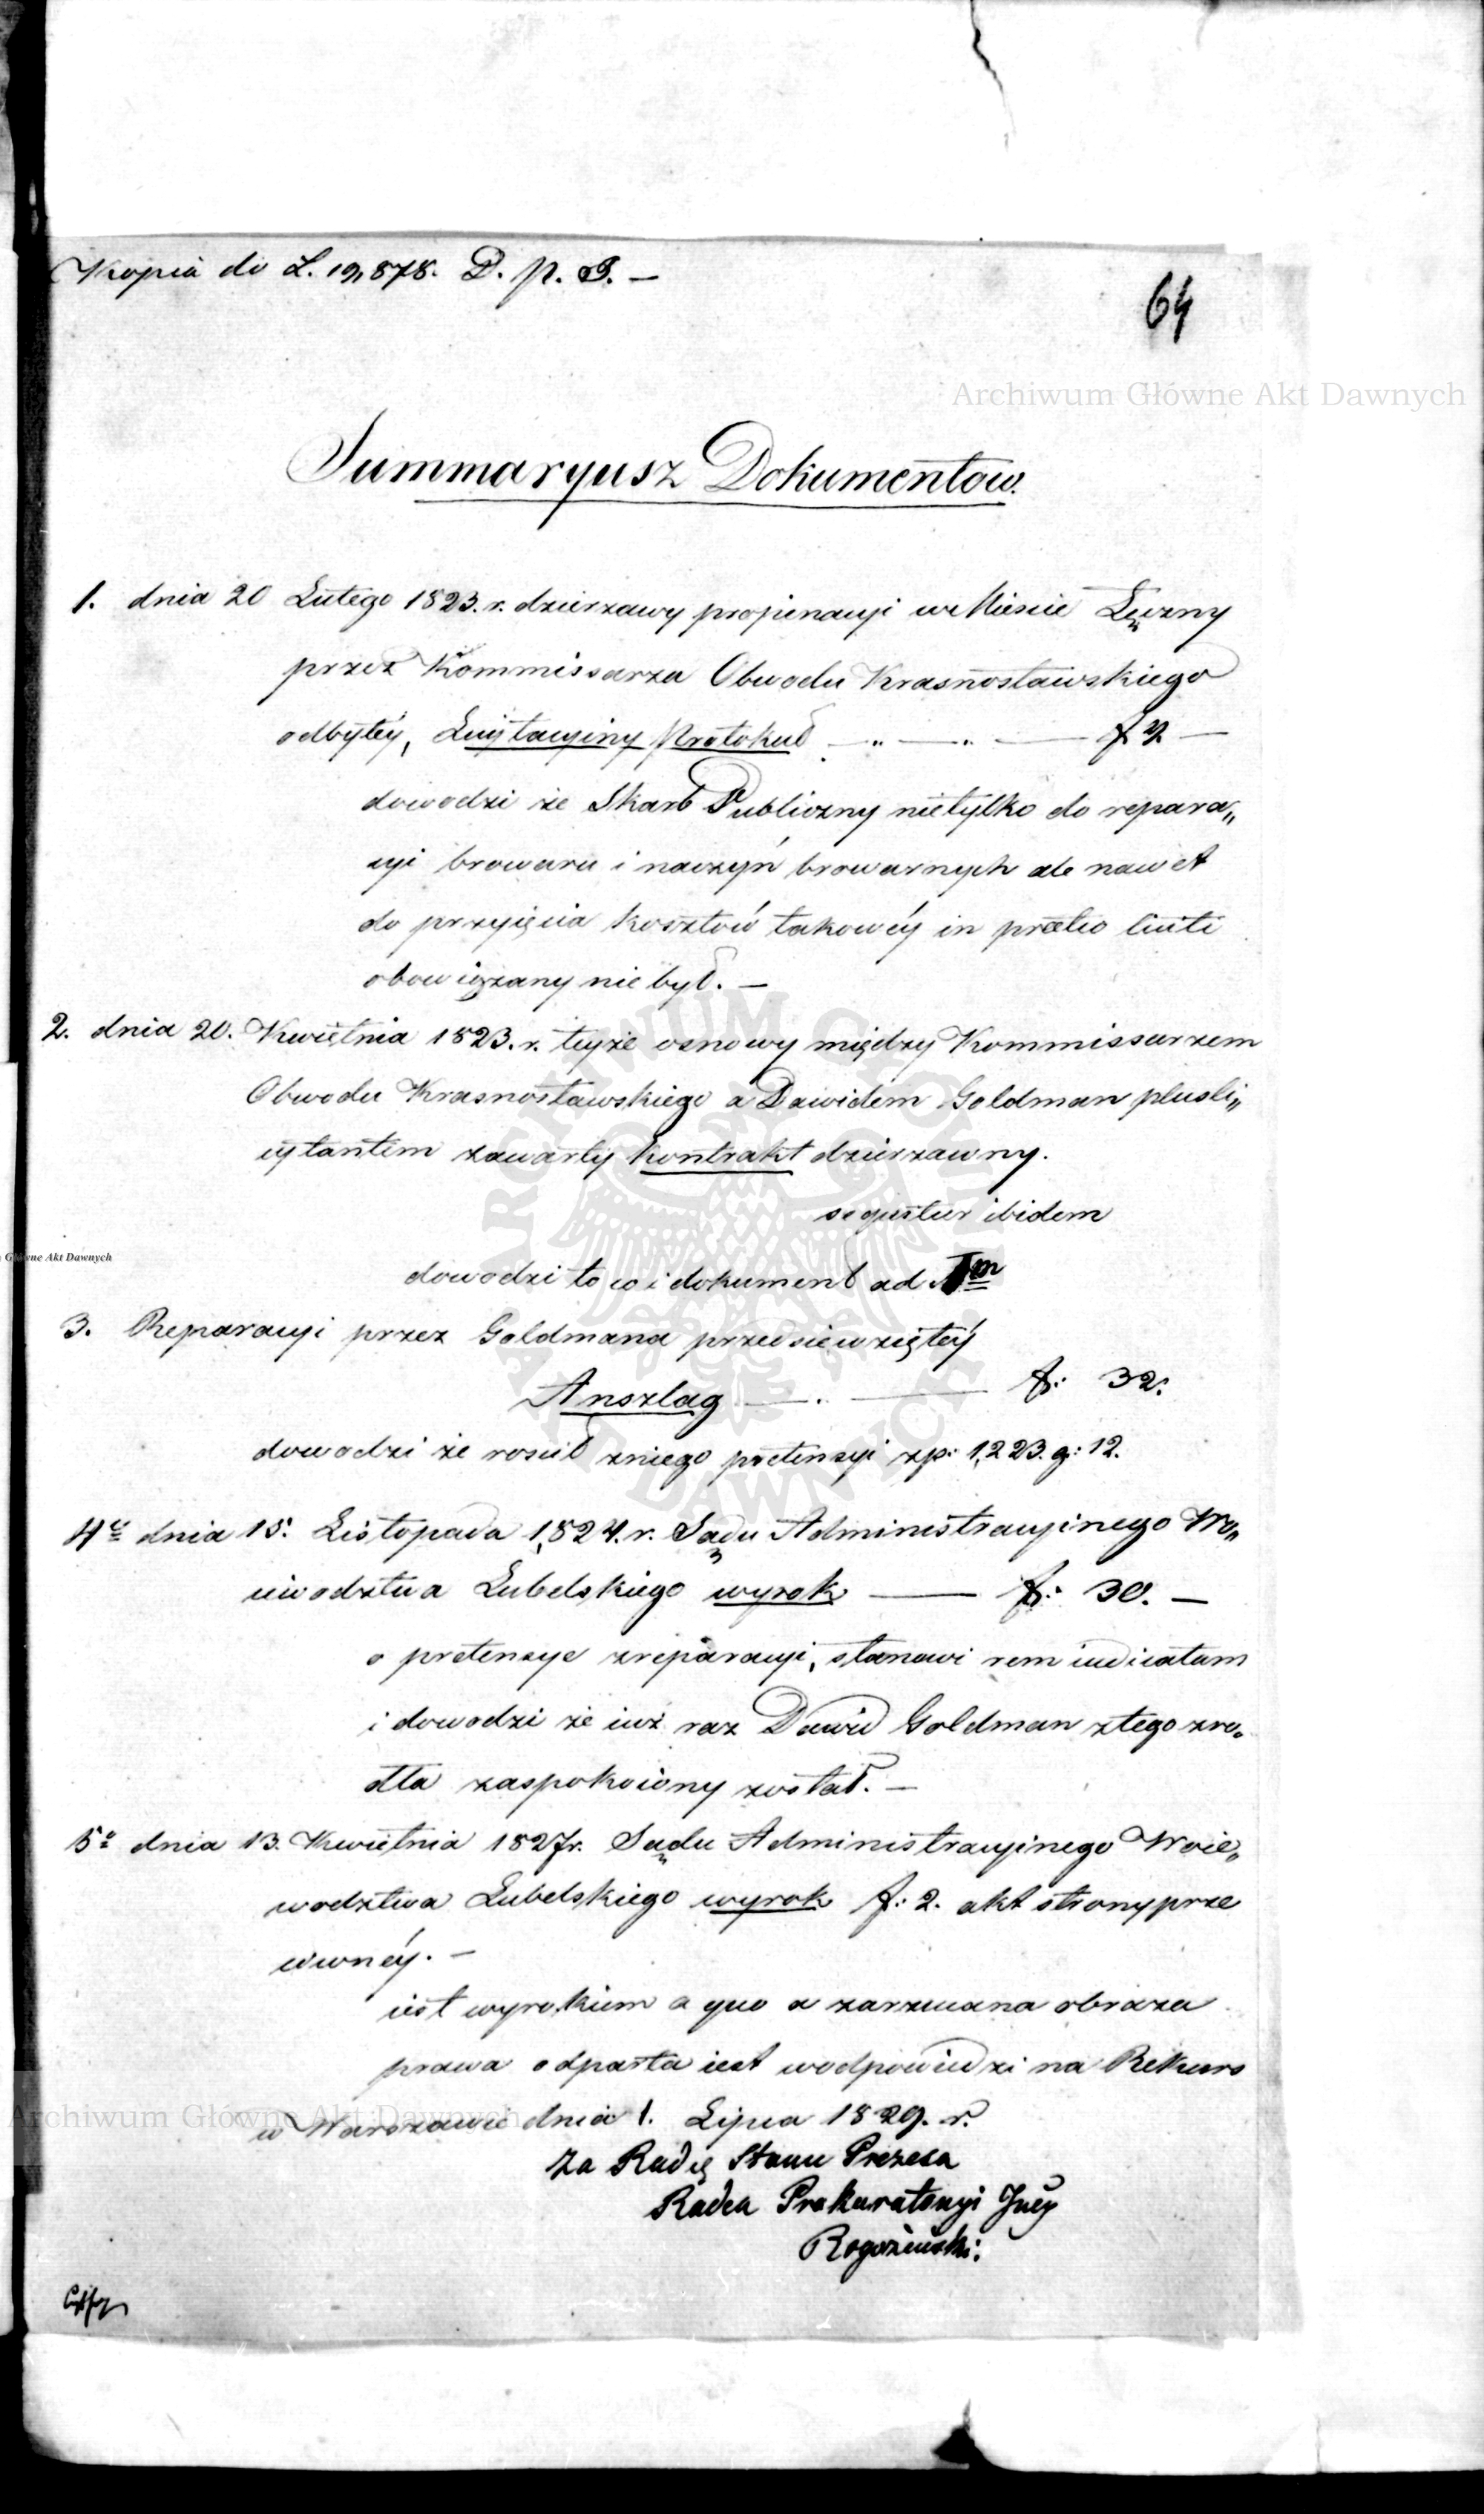 Kopia do L. 19,878. D. p. S. —
64
Archiwum Główne Akt Dawnych
Summaryusz Dokumentow.
1. dnia 20 Lutego 1823. r. dzierzawy propinacyi w Miescie Łęczny
przez Kommissarza Obwodu Krasnostawskiego
odbytéy, Licytacyiny Protokuł — " — " — f
dowodzi że Skarb Publiczny nietylko do repara„
cyi browaru i naczyń browarnych ale nawet
do przyięcia kosztów takowéy in prætio liciti
obowiązany nie był. —
2. dnia 20. Kwietnia 1823. r. teyże osnowy między Kommissarzem
Obwodu Krasnostawskiego a Dawidem Goldman plusli„
cytantem zawarty kontrakt dzierzawny.
sequitur ibidem
dowodzi to co i dokument ad 1m
3. Reparacyi przez Goldmana przedsiewziętéy
Anszlag — . — f: 32.
dowodzi że rościł zniego pretensyi zp: 1,223. g: 12.
4te dnia 15. Listopada 1,824. r. Sądu Administracyinego Wo„
iewodztwa Lubelskiego wyrok — f: 30. —
o pretensye zreparacyi, stanowi rem iudicatam
i dowodzi że iuż raz Dawid Goldman ztego zro„
dła zaspokoiony został. —
5o dnia 13. Kwietnia 1827r. Sądu Administracyinego Woie„
wodztwa Lubelskiego wyrok f: 2. akt strony prze
ciwnéy. —
iest wyrokiem a quo a zarzucana obraza
prawa odparta iest wodpowiedzi na Rekurs
w Warszawie dnia 1. Lipca 1829. r.
Za Radcę Stanu Prezesa
Radca Prokuratoryi Jnéy
ARCHIWUM GŁÓWNE AKT DAWNYCH
Główne Akt Dawnych
Archiwum Główne Akt Dawnych